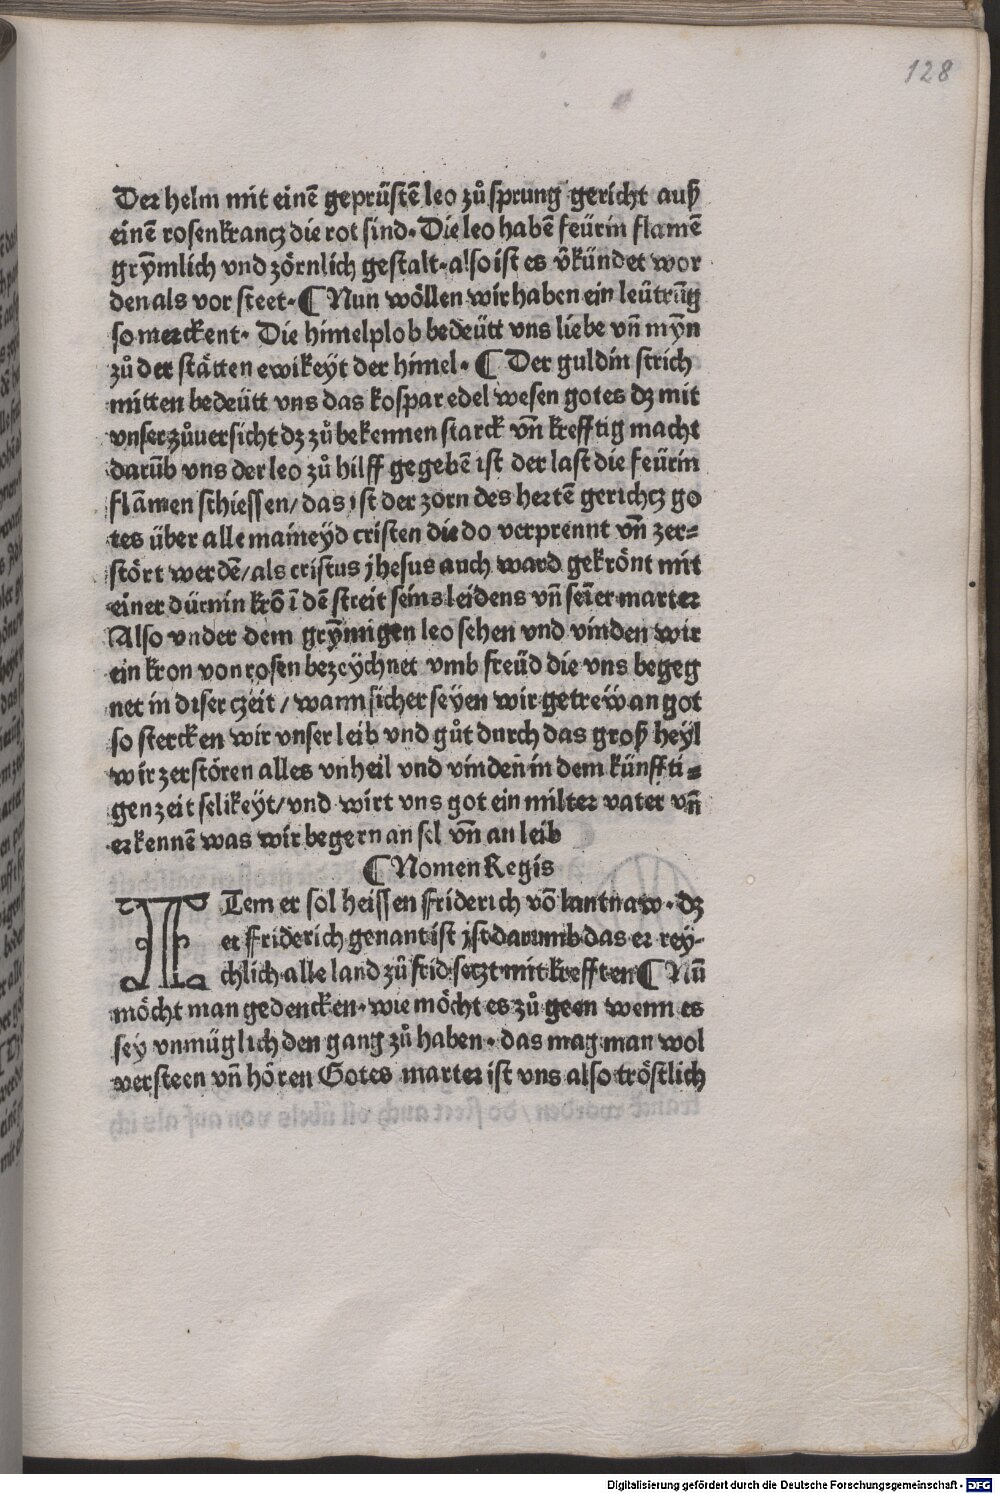 128
Der helm mit einē geprüstē leo zů sprung gericht auß
einē rosenkrancz die rot sind. Die leo habē feürin flamē
grȳmlich vnd zörnlich gestalt. also ist es v̄kündet wor
den als vor steet. ¶ Nun wöllen wir haben ein leütrūg
so merckent. Die himelplob bedeütt vns liebe vn̄ mȳn
zů der stätten ewikeyt der himel. ¶ Der guldin strich
mitten bedeütt vns das kospar edel wesen gotes dz mit
vnser zůuersicht dz zů bekennen starck vn̄ krefftig macht
darūb vns der leo zů hilff gegebē ist der last die feürin
flāmen schiessen/ das ist der zorn des hertē gerichcz go
tes über alle maineyd cristen die do verprennt vn̄ zer=
stört werdē/ als cristus jhesus auch ward gekrönt mit
einer dürnin krō ī dē streit seins leidens vn̄ seīer marter
Also vnder dem grȳmigen leo sehen vnd vinden wir
ein kron von rosen bezeychnet vmb freüd die vns begeg
net in diser czeit / wann sicher seyen wir getrew an got
so stercken wir vnser leib vnd gůt durch das groß heyl
wir zerstören alles vnheil vnd vinden in dem künffti=
gen zeit selikeyt/ vnd wirt vns got ein milter vater vn̄
erkennē was wir begern an sel vn̄ an leib
¶ Nomen Regis
ITem er sol heissen Friderich vō lantnaw. dz
er Friderich genant ist jst darumb das er rey=
chlich alle land zů frid setzt mit krefften ¶ Nū
möcht man gedencken. wie möcht es zů geen wenn es
sey vnmüglich den gang zů haben. das mag man wol
versteen vn̄ hören Gotes marter ist vns also tröstlich
Digitalisierung gefördert durch die Deutsche Forschungsgemeinschaft - DFG